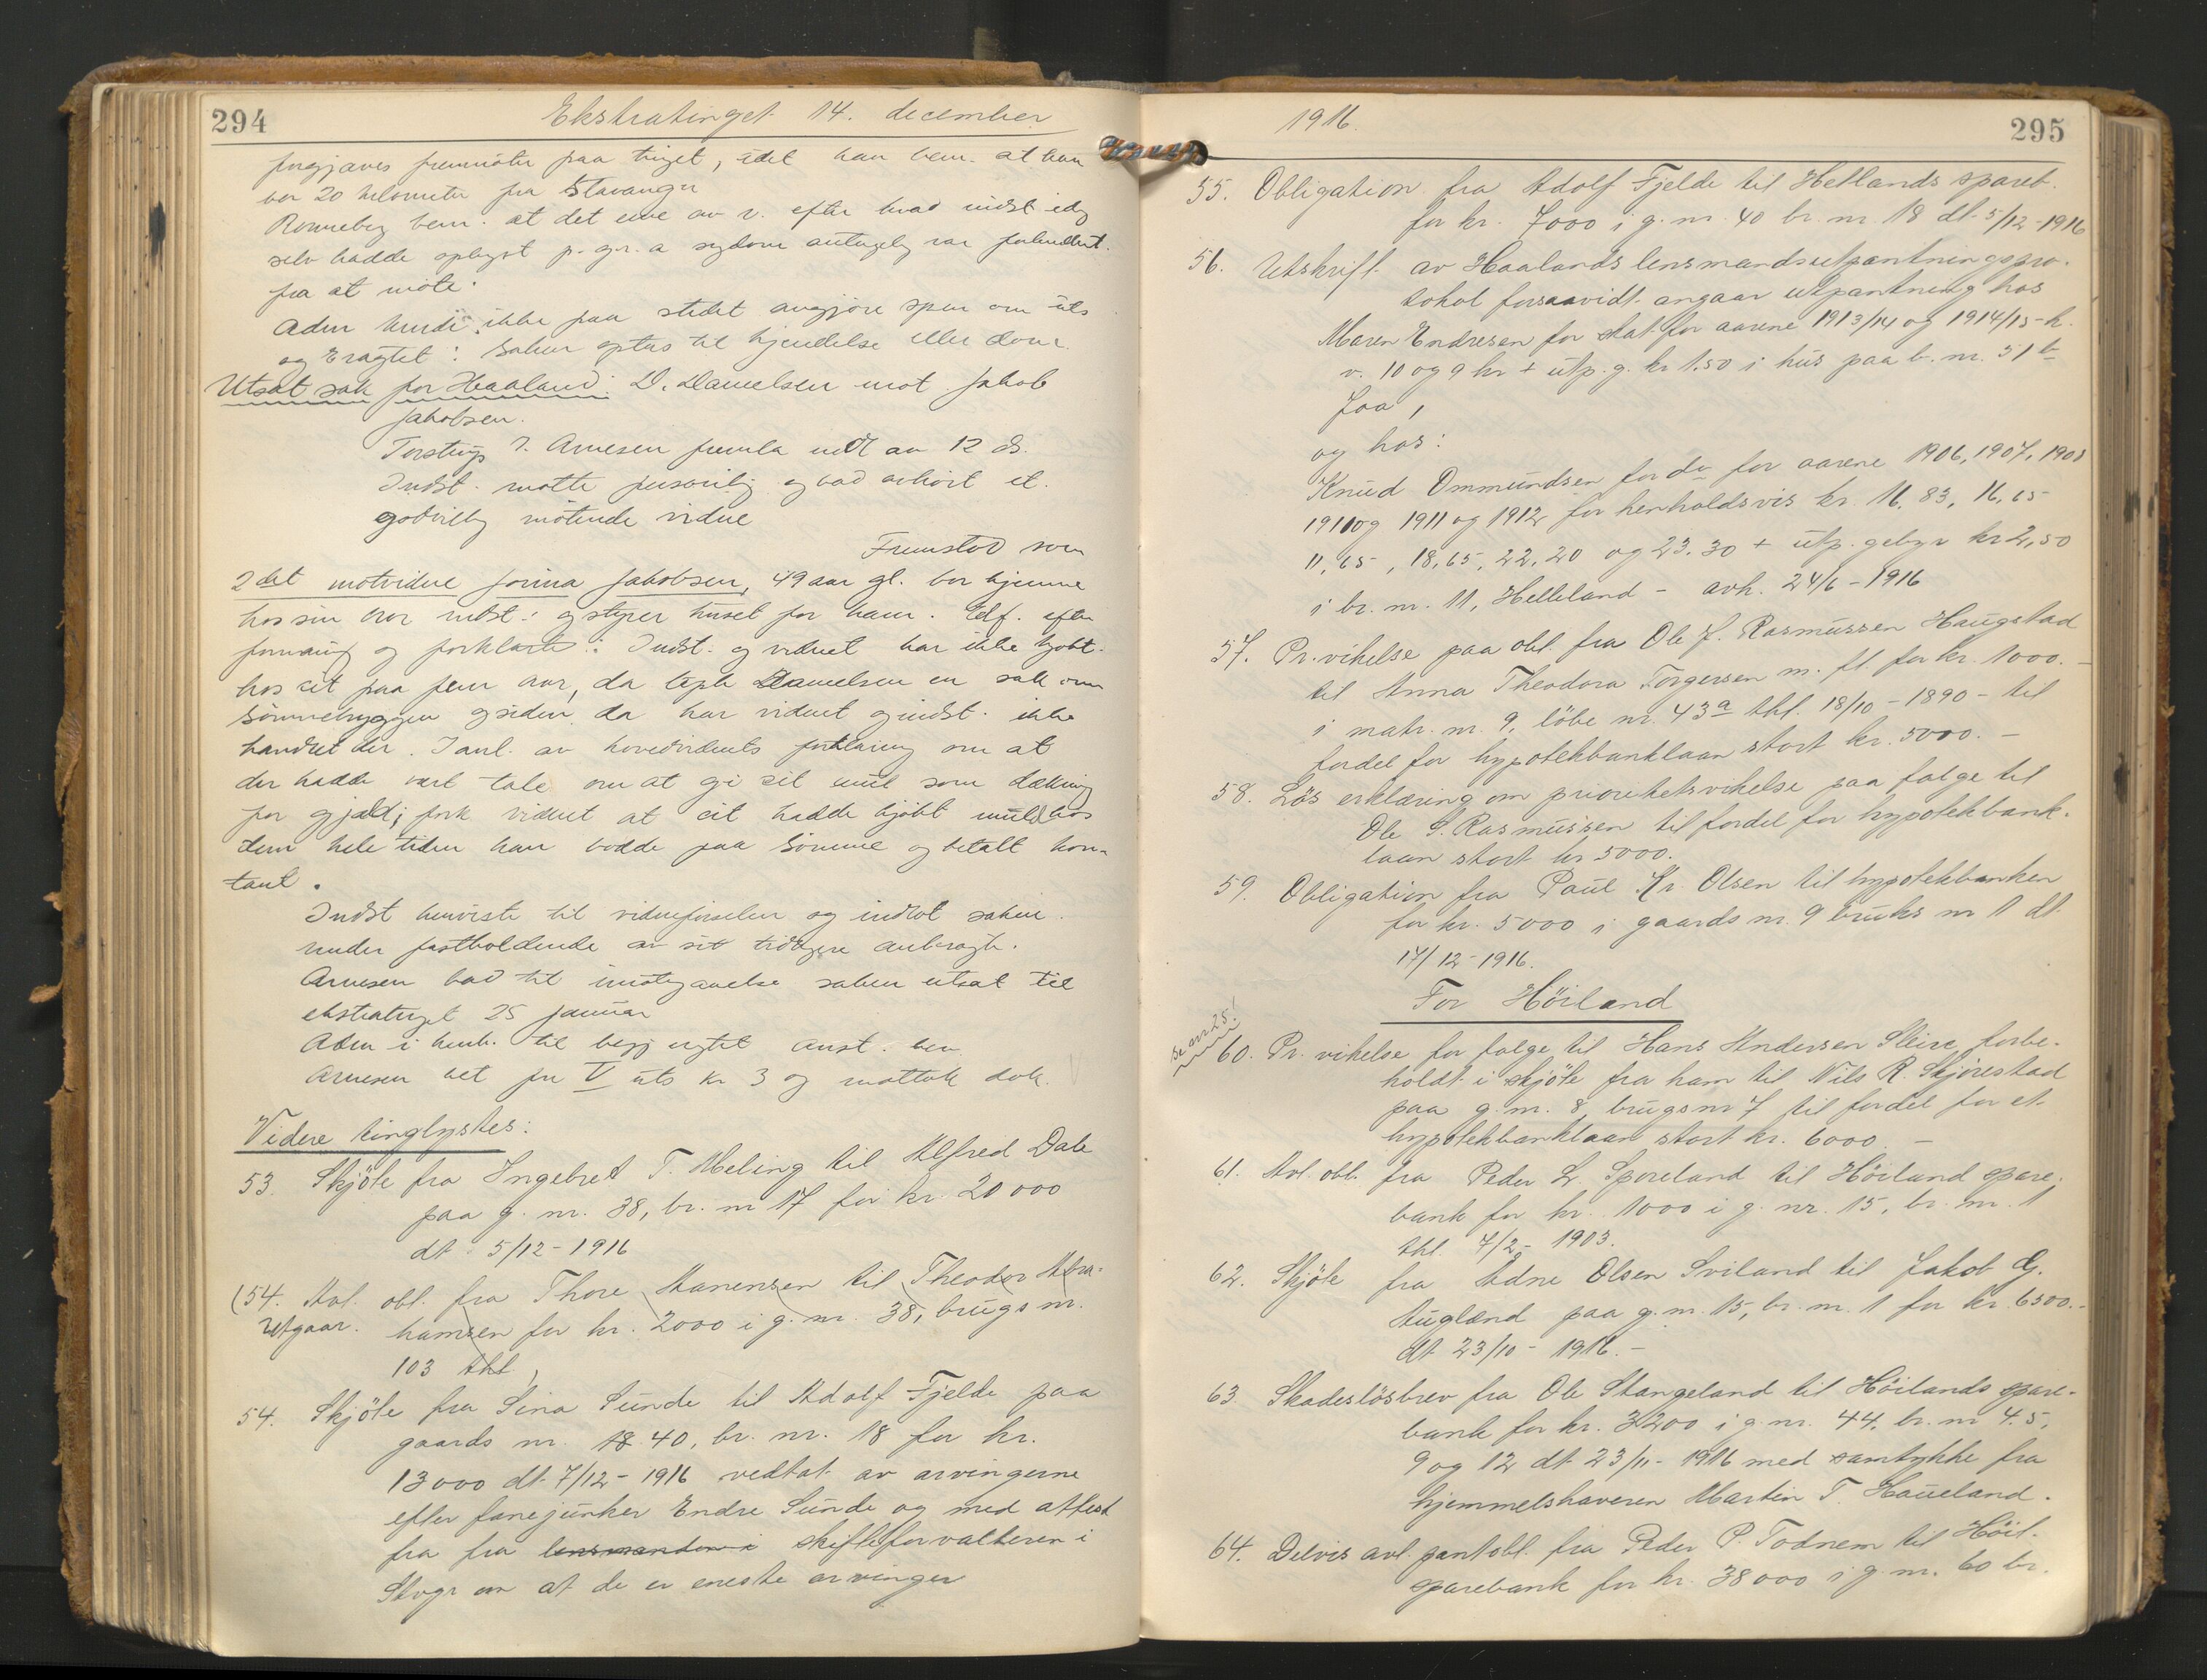 294
Ekstratinget 14. december
forgjæves fremmøter paa tinget, idet han bem. at han
bor 20 kilometer fra Stavanger
Ronneberg bem. at det ene av v. efter hvad indst. idag
selv hadde oplyst p. gr. a sygdom antagelig var forhindret
fra at møte.
Adm kunde ikke paa stedet avgjøre spm om uts
og eragtet: Saken optas til kjendelse eller dom.
Utsat sak for Haaland: D. Danielsen mot Jakob
Jakobsen.
Torstrup v. Arnesen fremla utst av 12 ds.
Indst. møtte personlig og bad avhørt et
godvillig møtende vidne
Fremstod som
2det motvidne Jorina Jakobsen, 49 aar gl. bor hjemme
hos sin bror indst. og styrer huset for ham. Edf. efter
formaning og forklarte: Indst. og vidnet har ikke kjøbt
hos cit paa fem aar, da tapte Danielsen en sak om
Sømmebryggen og siden da har vidnet og indst. ikke
handlet der. I anl. av hovedvidnets forklaring om at
der hadde vært tale om at gi cit mel som dækning
for gjæld; fork vidnet at cit hadde kjøbt mel hos
dem hele tiden han bodde paa Sømme og betalt kon-
tant.
Indst henviste til vidneførselen og indlot saken
under fastholdende av sit tidligere anbragte.
Arnesen bad til imøtegaaelse saken utsat til
ekstratinget 25 januar
Adm i henh. til begj. ugtet anst. bev.
Arnesen bet for V uts kr 3 og mottok dok.
Videre tinglystes:
53. Skjöte fra Ingebret T. Meling til Alfred Dale
paa g. nr. 38, br. nr 17 for kr. 20 000
dt. 5/12-1916
(54. Avl. obl. fra Thore Hanensen til Theodor Abra-
Utgaar. hamsen for kr. 2000 i g. nr. 38, brugs nr.
103 thl,)
54. Skjöte fra Sina Sunde til Adolf Fjelde paa
gaards nr. 18 40, br. nr. 18 for kr.
13000 dt. 7/12-1916 vedtat av arvingerne
efter fanejunker Endre Sunde og med attest
fra fra lensmanden i skifteforvalteren i
Stvgr om at de er eneste arvinger
1916
295
55. Obligation fra Adolf Fjelde til Hetlands spareb.
for kr. 7000 i g. nr. 40 br. nr 18 dt. 5/12-1916
56. Utskrift av Haalands lensmandsutpantningspro-
tokol forsaavidt angaar utpantning hos
Maren Endresen for skat for aarene 1913/14 og 1914/15 - h.
v. 10 og 9 kr + utp. g. kr 1.50 i hus paa b. nr. 51 b
Joa,
og hos:
Knud Ommundsen for do for aarene 1906, 1907, 1908
1910 og 1911 og 1912 for henholdsvis kr 16.83, 16,65
11,65, 18,65, 22,20 og 23.30 + utp. gebyr kr 2,50
i br. nr. 11, Helleland - avh. 24/6-1916
57. Pr. vikelse paa obl. fra Ole J. Rasmussen Haugstad
til Anna Theodora Torgersen m. fl. for kr. 1000.-
i matr. nr. 9, löbe nr. 43a thl. 18/10-1890 - til
fordel for hypotekbanklaan stort kr. 5000.-
58. Lös erklæring om prioritetsvikelse paa følge til
Ole S. Rasmussen til fordel for hypotekbank-
laan stort kr 5000.
59. Obligation fra Paul Kr. Olsen til hypotekbanken
for kr. 5000 i gaards nr. 9 bruks nr 1 dt.
14/12-1916.
For Höiland
se anr 25!
60. Pr. vikelse for følge til Hans Andersen Sleire forbe-
holdt i skjöte fra ham til Nils R. Skjørestad
paa g. nr. 8, brugsnr 7 til fordel for et
hypotekbanklaan stort kr. 6000.-
61. Avl. obl. fra Peder L. Sporeland til Höiland spare-
bank for kr. 1000 i g. nr. 15, br. nr. 1
thl. 7/2- 1903.
62. Skjöte fra Adne Olsen Sviland til Jakob G.
Auglænd paa g. nr. 15, br. nr. 1 for kr. 6500.-
dt 23/10- 1916.-
63. Skadeslösbrev fra Ole Stangeland til Höilands spare-
bank for kr. 3200 i g. nr. 44, br. nr 4.5,
9 og 12 dt 23/11- 1916 med samtykke fra
hjemmelshaveren Martin T. Haueland.
64. Delvis avl. pantobl. fra Peder P. Todnem til Höil.
sparebank for kr. 38000 i g. nr. 60 br.